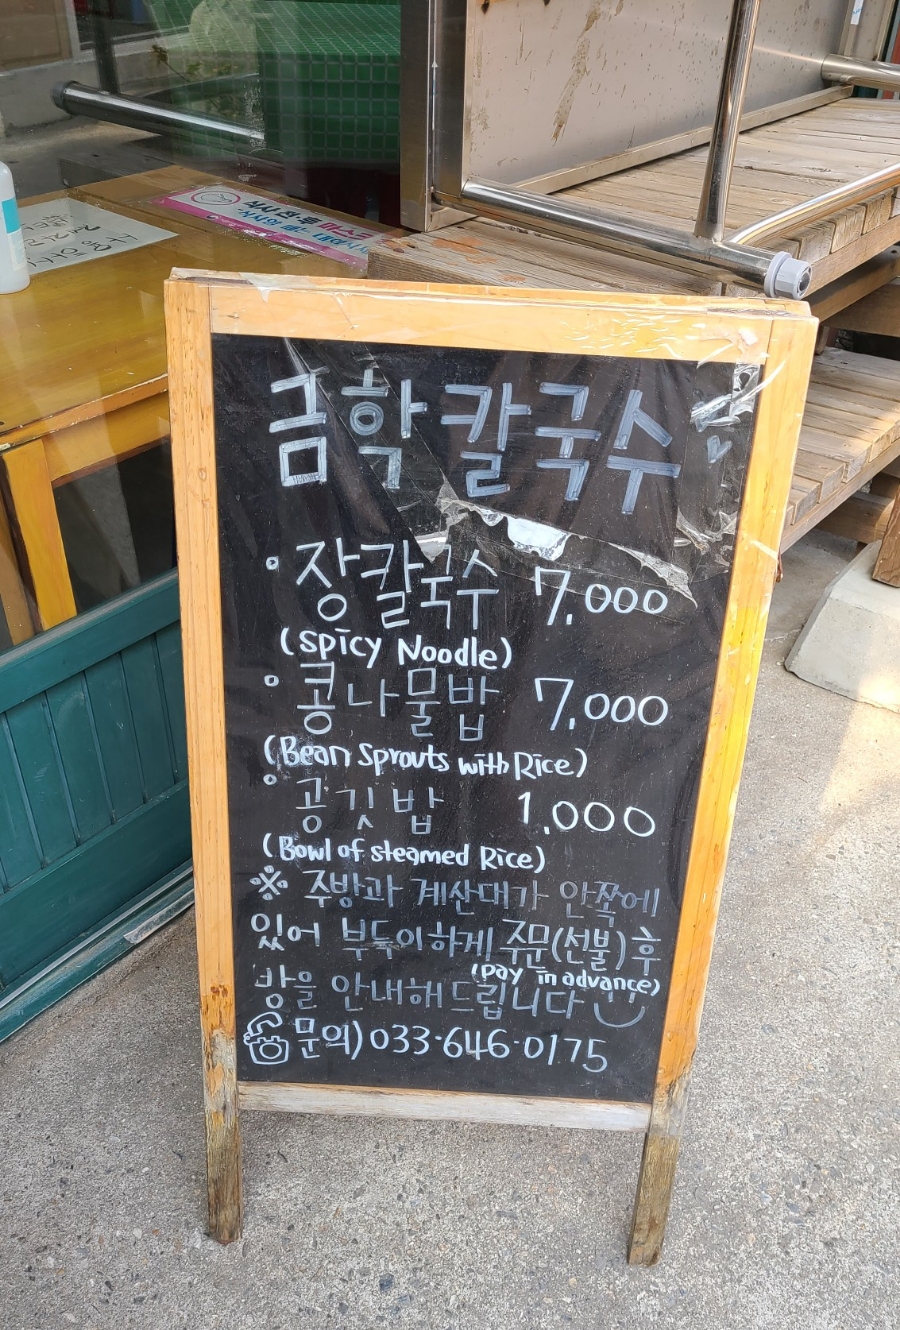 금학칼국수
• 장칼국수 7,000
(spicy Noodle)
• 콩나물밥 7,000
(Bean Sprouts with Rice)
• 공깃밥 1,000
(Bowl of steamed Rice)
※ 주방과 계산대가 안쪽에
있어 부득이하게 주문(선불)후
(pay in advance)
방을 안내해드립니다
☎문의)033-646-0175